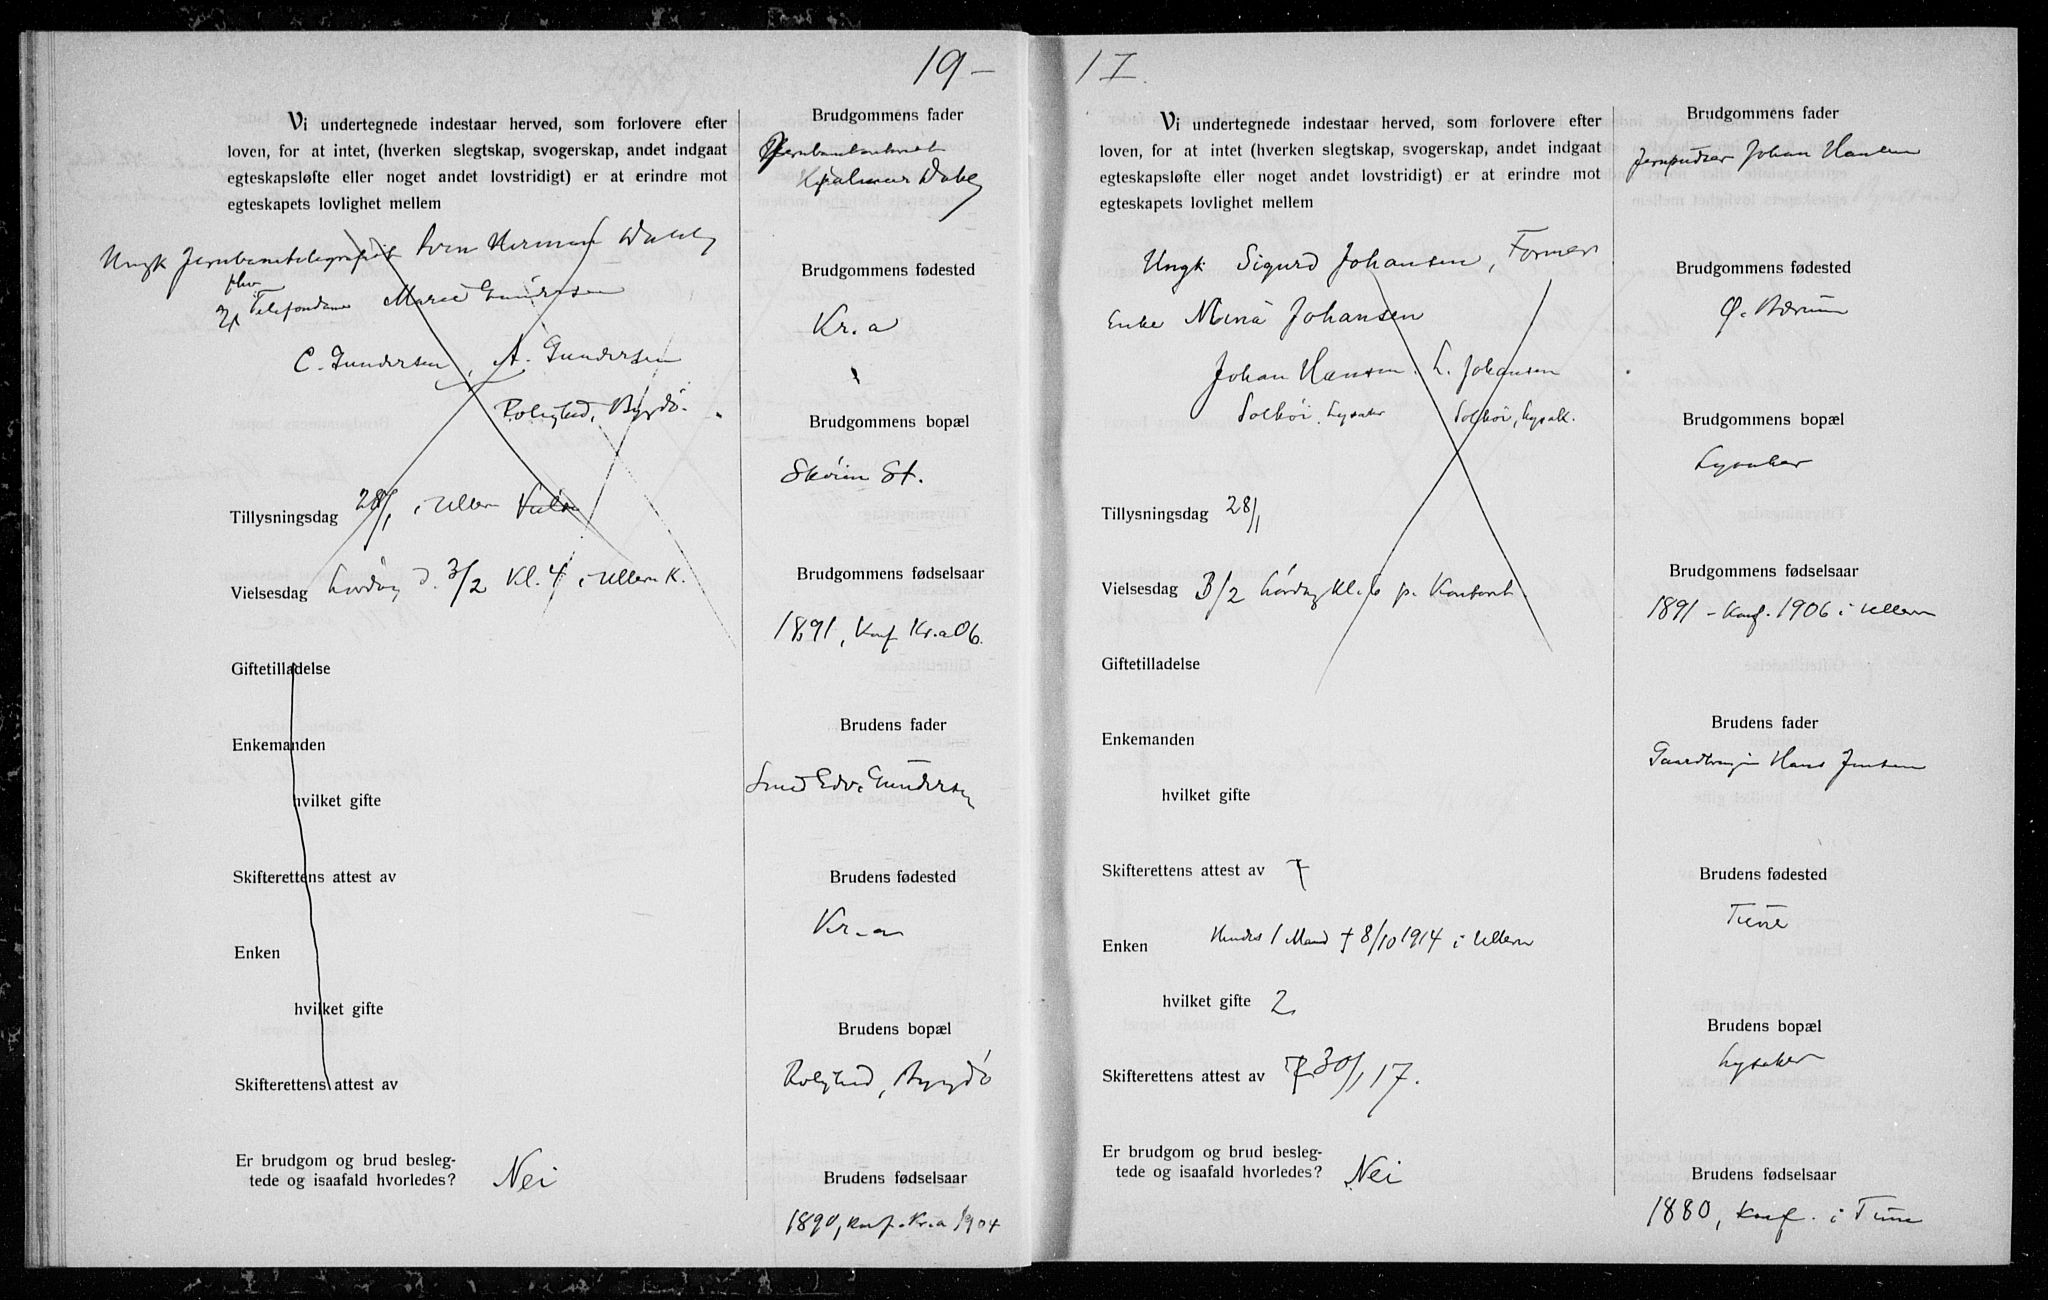 19–
Vi undertegnede indestaar herved, som forlovere efter
loven, for at intet, (hverken slegtskap, svogerskap, andet indgaat
egteskapsløfte eller noget andet lovstridigt) er at erindre mot
egteskapets lovlighet mellem
Ungk Jernbanetelegrafist Sven Herman Dahly
fhv.
Telefondame Marie Gundersen
C. Gundersen, A. Gundersen
Rolighed, Bygdö.
Tillysningsdag 28/1 i Ullern
Vielsesdag Lördag d. 3/2 Kl. 4 i Ullern K.
Giftetilladelse
Enkemanden
hvilket gifte
Skifterettens attest av
Enken
hvilket gifte
Skifterettens attest av
Er brudgom og brud besleg-
tede og isaafald hvorledes? Nei
Brudgommens fader
Hjalmar Dahly
Brudgommens fødested
Kr.a
Brudgommens bopæl
Sköien St.
Brudgommens fødselsaar
1891, Konf Kr.a 06.
Brudens fader
Smed Edv. Gundersen
Brudens fødested
Kr.a
Brudens bopæl
Rolighed, Bygdö
Brudens fødselsaar
1890, Konf. Kr.a 1904
17.
Vi undertegnede indestaar herved, som forlovere efter
loven, for at intet, (hverken slegtskap, svogerskap, andet indgaat
egteskapsløfte eller noget andet lovstridigt) er at erindre mot
egteskapets lovlighet mellem
Ungk Sigurd Johansen, Former
Enke Mina Johansen
Johan Hansen. L. Johansen
Solböi, Lysaker Solböi, Lysak.
Tillysningsdag 28/1
Vielsesdag 3/2 Lördag Kl. 6 p. Kontoret.
Giftetilladelse
Enkemanden
hvilket gifte
Skifterettens attest av 7
Enken Hendes 1 Mand † 8/10 1914 i Ullern
hvilket gifte 2
Skifterettens attest av 30/1 17.
Er brudgom og brud besleg-
tede og isaafald hvorledes? Nei
Brudgommens fader
Jernpudser Johan Hansen
Brudgommens fødested
Ø. Bærum
Brudgommens bopæl
Lysaker
Brudgommens fødselsaar
1891 – Konf. 1906 i Ullern
Brudens fader
Hans Jensen
Brudens fødested
Tune
Brudens bopæl
Lysaker
Brudens fødselsaar
1880, Konf. i Tune